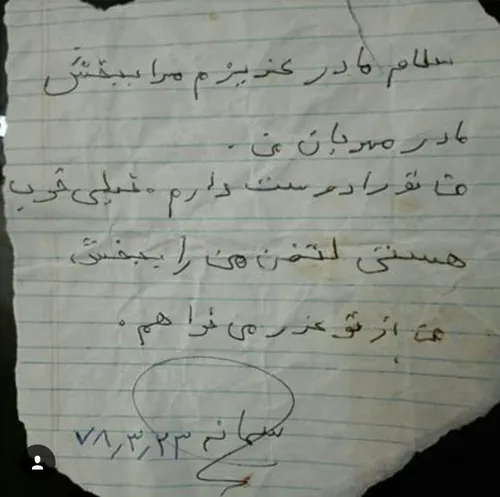 سلام مادر عزیزم مرا ببخش
مادر مهربان من.
من تو را دوست دارم. خیلی خوب
هستی لتفن من را ببخش
من از تو عذر می خواهم.
سمانه ۷۸٫۳٫۲۳